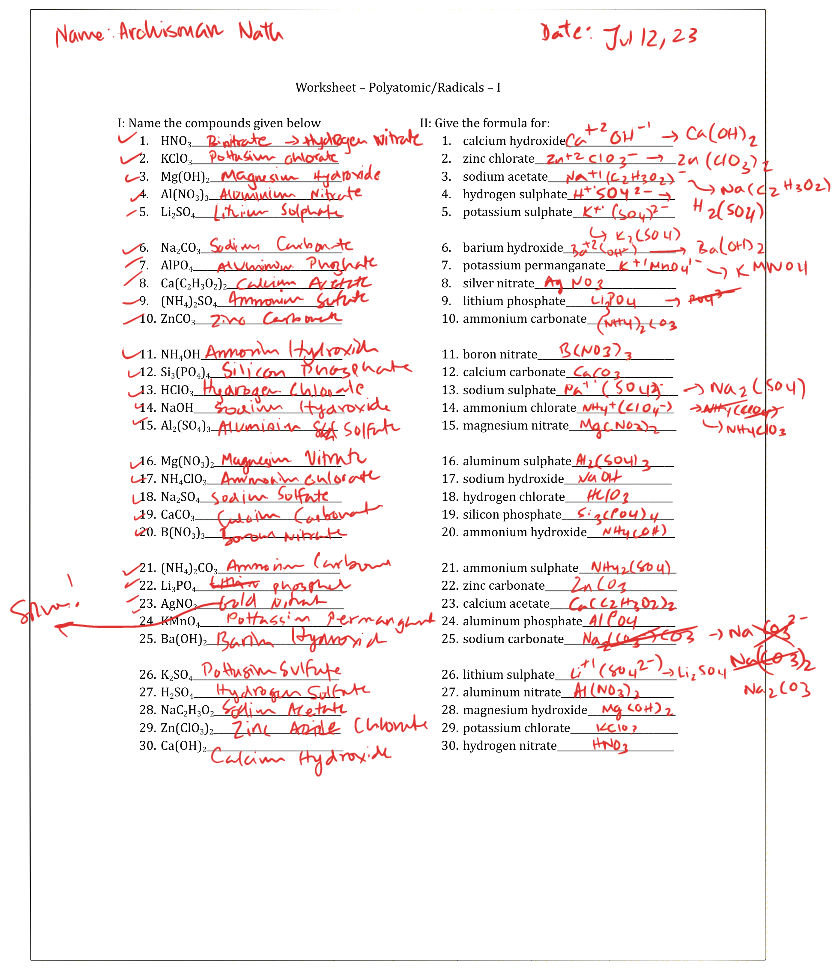 Name: Archisman Nath
Date: Jul 12, 23
Worksheet – Polyatomic/Radicals – I
I: Name the compounds given below
1. HNO₃ Binitrate → Hydrogen Nitrate
2. KClO₃ Pottasium chlorate
3. Mg(OH)₂ Magnesium Hydroxide
4. Al(NO₃)₃ Aluminium Nitrate
5. Li₂SO₄ Litium Sulphate
6. Na₂CO₃ Sodium Carbonate
7. AlPO₄ Aluminum Phosphate
8. Ca(C₂H₃O₂)₂ Calcium Acetate
9. (NH₄)₂SO₄ Ammonium Sulfate
10. ZnCO₃ Zinc Carbonate
11. NH₄OH Ammonium Hydroxid
12. Si₃(PO₄)₄ Silicon Phosphate
13. HClO₃ Hydrogen Chlorate
14. NaOH Sodium Hydroxide
15. Al₂(SO₄)₃ Aluminium Sulfate
16. Mg(NO₃)₂ Magnesium Nitrate
17. NH₄ClO₃ Ammonium chlorate
18. Na₂SO₄ Sodium Sulfate
19. CaCO₃ Calcium Carbonat
20. B(NO₃)₃ Boron Nitrate
21. (NH₄)₂CO₃ Ammonium Carbonate
22. Li₃PO₄ Lithium phosphet
Silver!
23. AgNO₃ Gold Nitrat
24. KMnO₄ Pottassium Permanganat
25. Ba(OH)₂ Barium Hydroxid
26. K₂SO₄ Pottasium Sulfate
27. H₂SO₄ Hydrogen Sulfate
28. NaC₂H₃O₂ Sodium Acetate
29. Zn(ClO₃)₂ Zinc Chlorate
30. Ca(OH)₂ Calcium Hydroxide
II: Give the formula for:
1. calcium hydroxide Ca⁺² OH⁻¹ → Ca(OH)₂
2. zinc chlorate Zn⁺² ClO₃⁻ → Zn(ClO₃)₂
3. sodium acetate Na⁺¹(C₂H₃O₂)⁻ → Na(C₂H₃O₂)
4. hydrogen sulphate H⁺¹SO4²⁻ → H₂(SO4)
5. potassium sulphate K⁺¹(SO4)²⁻
↳ K₂(SO4)
6. barium hydroxide Ba⁺²(OH⁻) → Ba(OH)₂
7. potassium permanganate K⁺¹MnO4¹⁻ → KMNO4
8. silver nitrate Ag NO₃
9. lithium phosphate Li₃PO4 → PO4³⁻
10. ammonium carbonate (NH4)₂CO3
11. boron nitrate B(NO3)₃
12. calcium carbonate CaCO₃
13. sodium sulphate Na⁺¹(SO4)²⁻ → Na₂(SO4)
14. ammonium chlorate NH4⁺(ClO4⁻) → NH4(ClO4)
↳ NH4ClO3
15. magnesium nitrate Mg(NO3)₂
16. aluminum sulphate Al₂(SO4)₃
17. sodium hydroxide NaOH
18. hydrogen chlorate HClO₃
19. silicon phosphate Si₃(PO4)₄
20. ammonium hydroxide NH4(OH)
21. ammonium sulphate NH4₂(SO4)
22. zinc carbonate ZnCO₃
23. calcium acetate Ca(C2H3O2)₂
24. aluminum phosphate AlPO4
25. sodium carbonate Na₂(CO₃)CO3 → Na CO3²⁻
Na(CO3)₂
Na₂CO3
26. lithium sulphate Li⁺¹(SO4²⁻) → Li₂SO4
27. aluminum nitrate Al(NO3)₃
28. magnesium hydroxide Mg(OH)₂
29. potassium chlorate KClO₃
30. hydrogen nitrate HNO₃